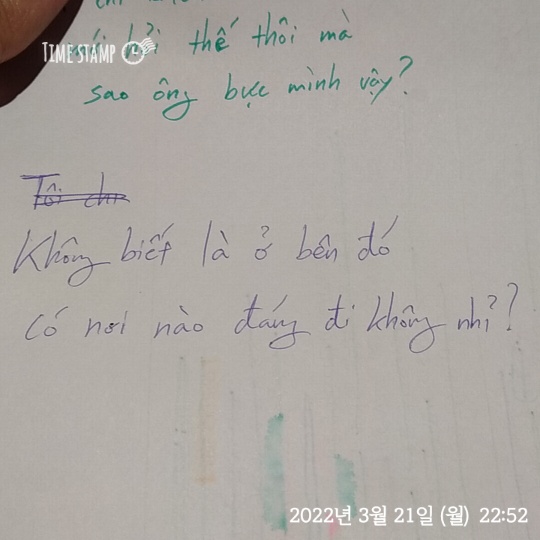 hỏi thế thôi mà
TIMESTAMP
sao ông bực mình vậy?
Tôi chr
Không biết là ở bên đó
có nơi nào đáng đi không nhỉ?
2022년 3월 21일 (월) 22:52